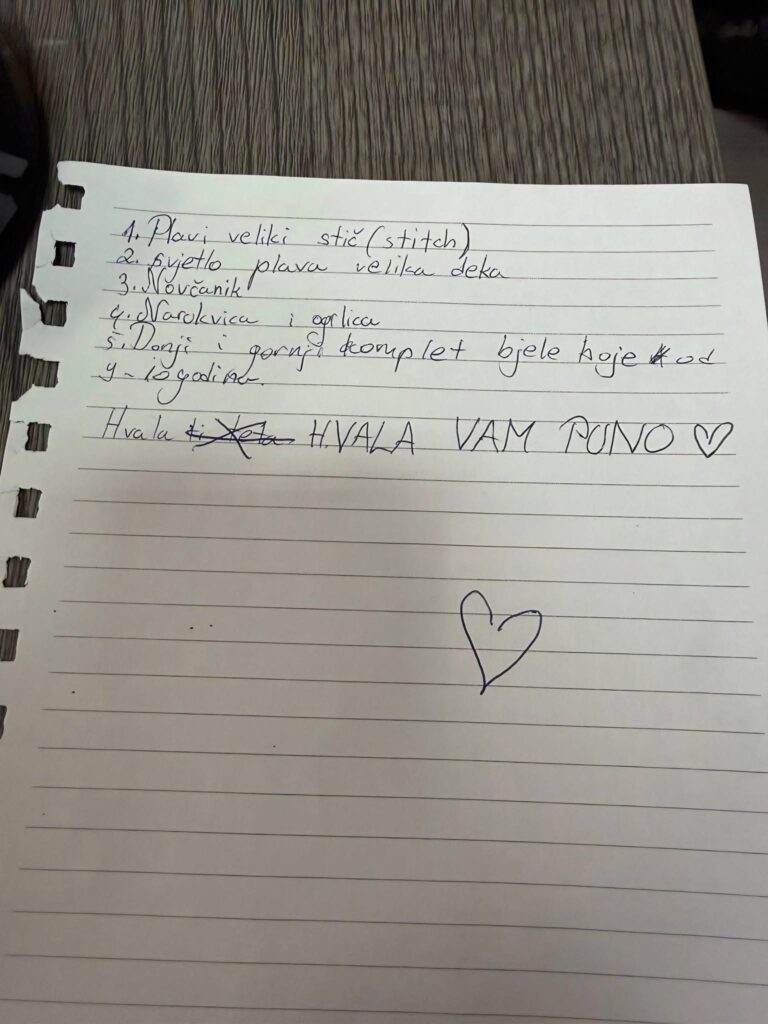 1. Plavi veliki stič (stitch)
2. svjetlo plava velika deka
3. Novčanik
4. Narukvica i ogrlica
5. Donji i gornji komplet bjele boje od
9-10 godina.
Hvala HVALA VAM PUNO ♡